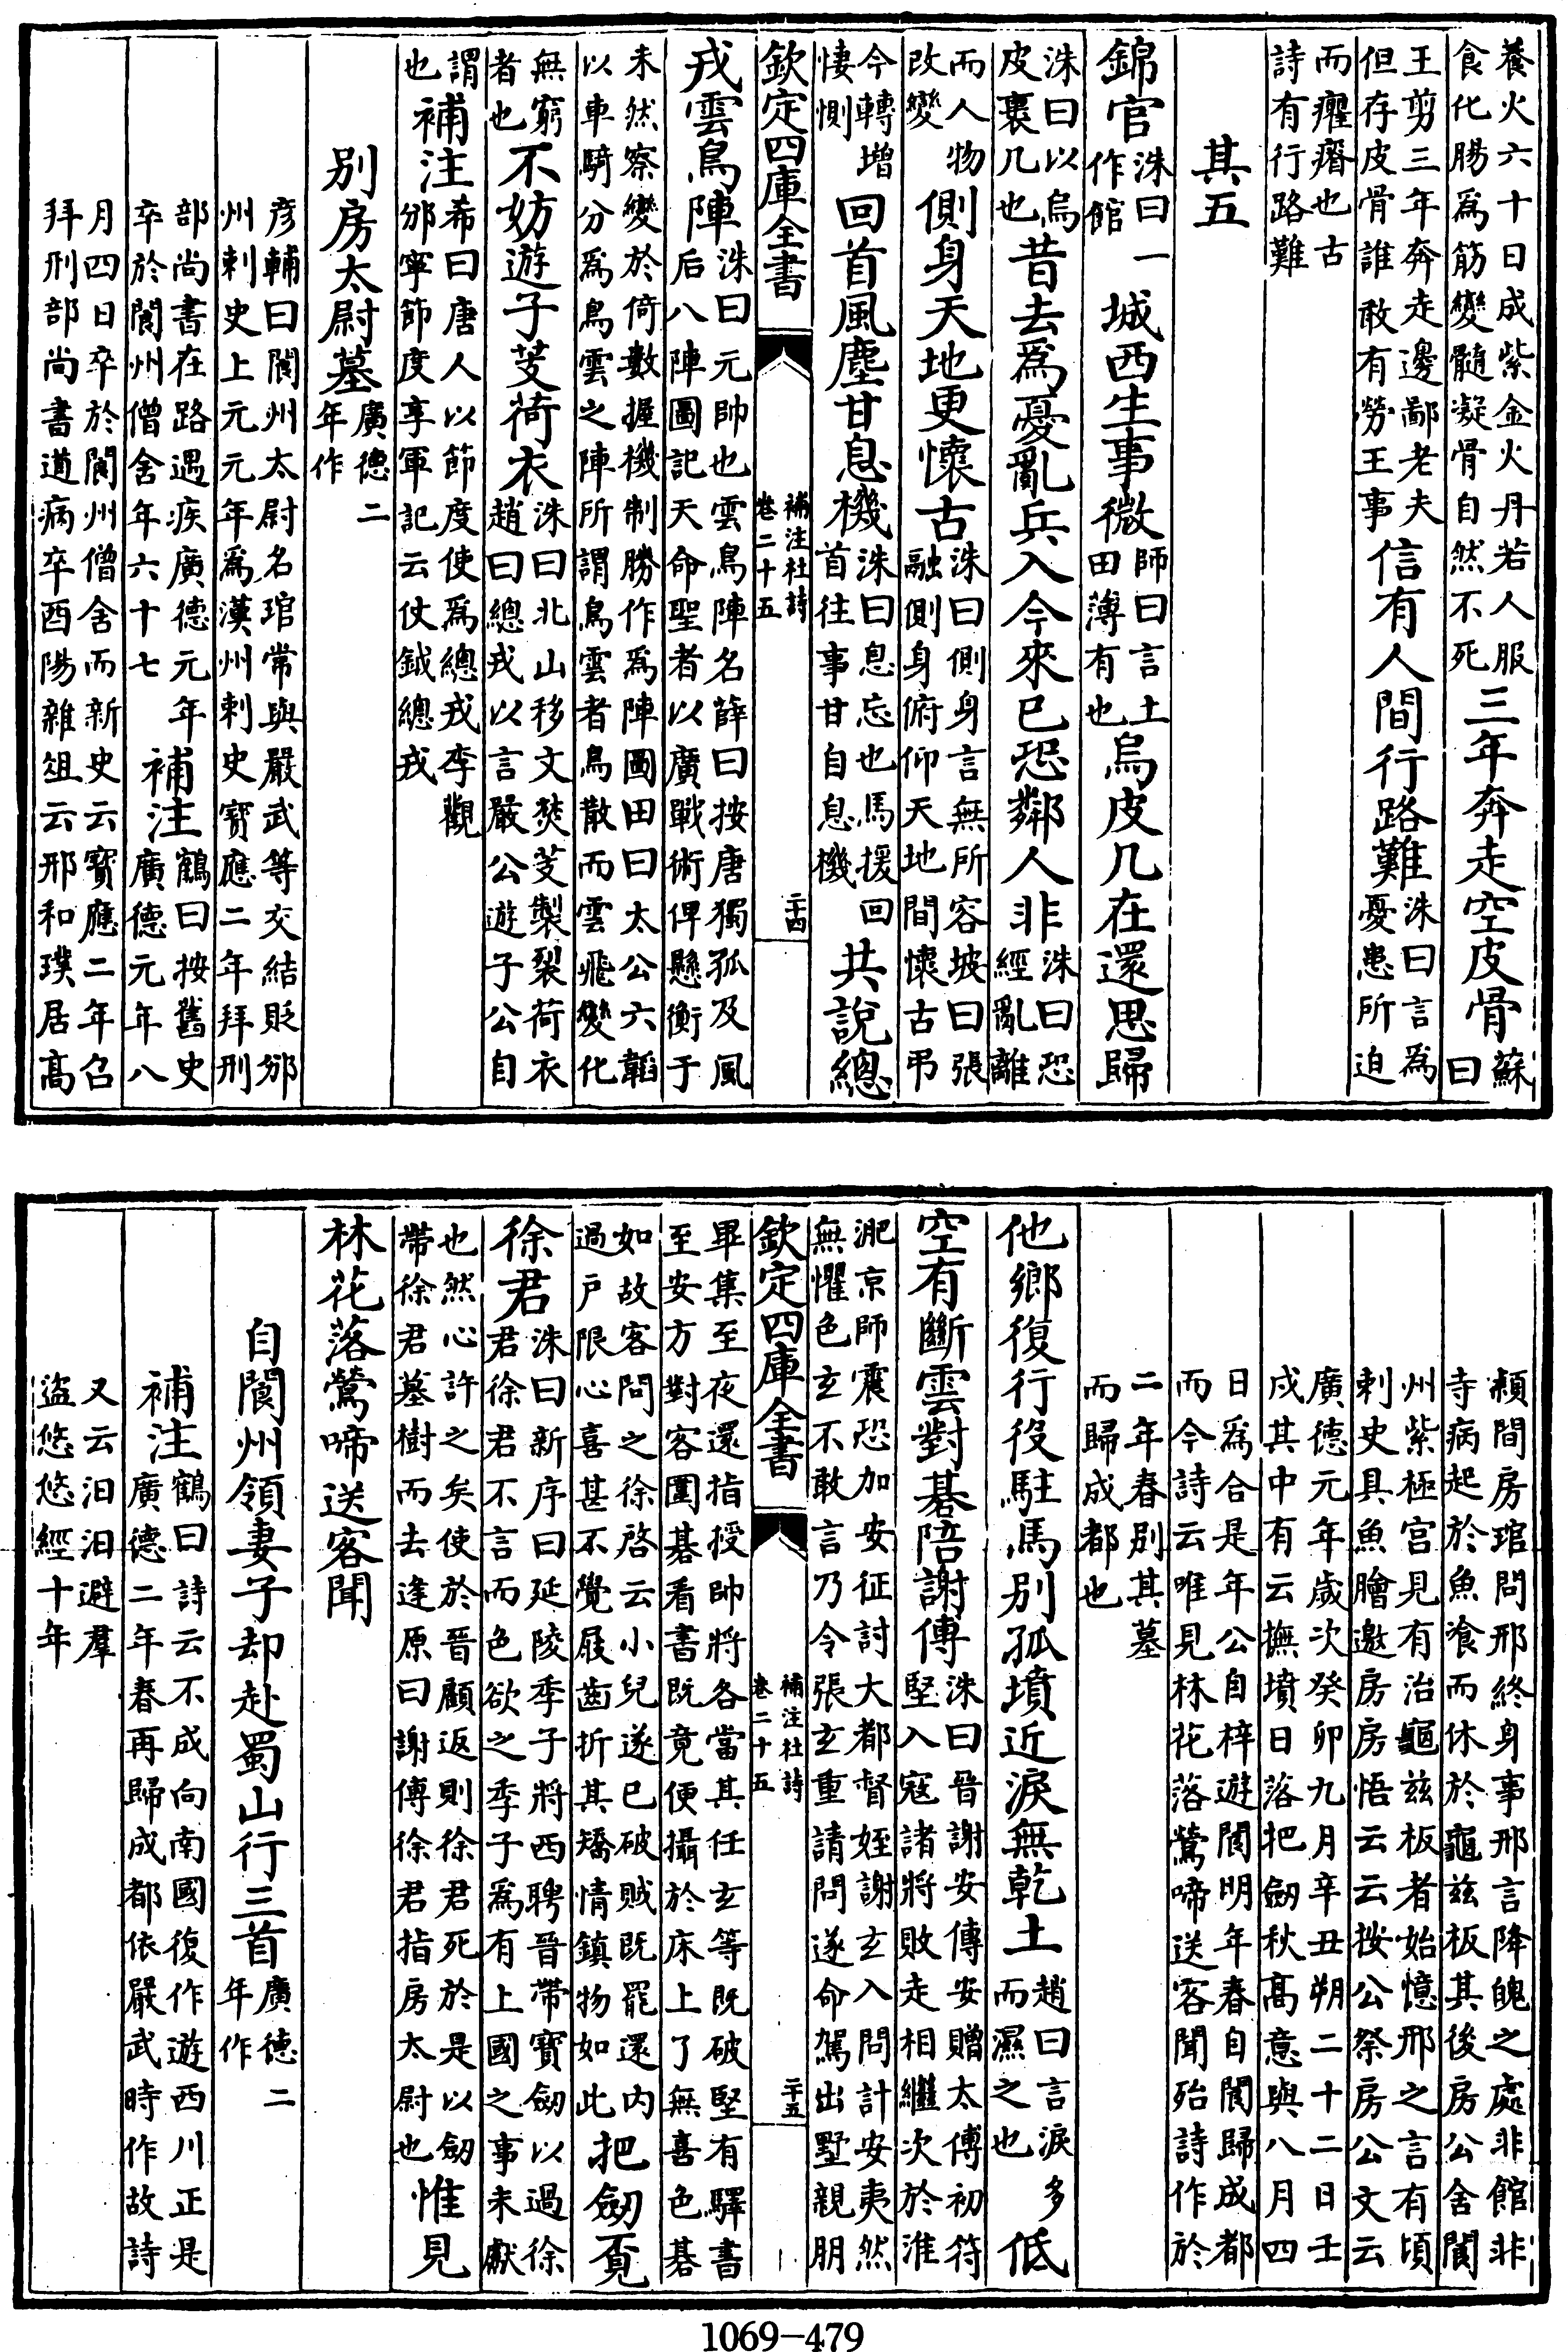 養火六十日成紫金火丹若人服食化腸爲筋變髓凝骨自然不死三年奔走空皮骨蘇曰
王剪三年奔走邊鄙老夫但存皮骨誰敢有勞王事信有人間行路難洙曰言爲憂患所迫
而癯瘠也古詩有行路難
其五
錦官洙曰一作館城西生事微師曰言土田薄有也烏皮几在還思歸
洙曰以烏皮裹几也昔去爲憂亂兵入今來已恐鄰人非洙曰恐經亂離
而人物改變側身天地更懷古洙曰側身言無所容坡曰張融側身俯仰天地間懷古弔
今轉增悽惻回首風塵甘息機洙曰息忘也馬援回首往事甘自息機共說總
欽定四庫全書 補注杜詩卷二十五 二十四
戎雲鳥陣洙曰元帥也雲鳥陣名薛曰按唐獨孤及風后八陣圖記天命聖者以廣戰術俾懸衡于
未然察變於倚數握機制勝作爲陣圖田曰太公六韜以車騎分爲鳥雲之陣所謂鳥雲者鳥散而雲飛變化
無窮者也不妨遊子芰荷衣洙曰北山移文焚芰製裂荷衣趙曰總戎以言嚴公遊子公自
謂也補注希曰唐人以節度使爲總戎李觀邠寧節度享軍記云仗鉞總戎
別房太尉墓廣德二年作
彥輔曰閬州太尉名琯常與嚴武等交結貶邠州刺史上元元年爲漢州刺史寶應二年拜刑
部尚書在路遇疾廣德元年卒於閬州僧舍年六十七補注鶴曰按舊史廣德元年八
月四日卒於閬州僧舍而新史云寶應二年召拜刑部尚書道病卒酉陽雜俎云邢和璞居高
頮間房琯問邢終身事邢言降魄之處非館非寺病起於魚飡而休於龜茲板其後房公舍閬
州紫極宮見有治龜茲板者始憶邢之言有頃刺史具魚膾邀房房悟云云按公祭房公文云
廣德元年歲次癸卯九月辛丑朔二十二日壬戌其中有云撫墳日落把劒秋高意與八月四
日爲合是年公自梓遊閬明年春自閬歸成都而今詩云唯見林花落鶯啼送客聞殆詩作於
二年春別其墓而歸成都也
他鄉復行役駐馬別孤墳近淚無乾土趙曰言淚多而濕之也低
空有斷雲對碁陪謝傅洙曰晉謝安傳安贈太傅初苻堅入寇諸將敗走相繼次於淮
淝京師震恐加安征討大都督姪謝玄入問計安夷然無懼色玄不敢言乃令張玄重請問遂命駕出墅親朋
欽定四庫全書 補注杜詩卷二十五 二十五
畢集至夜還指授帥將各當其任玄等既破堅有驛書至安方對客圍碁看書既竟便攝於床上了無喜色碁
如故客問之徐啓云小兒遂已破賊既罷還內過戶限心喜甚不覺屐齒折其矯情鎮物如此把劒覓
徐君洙曰新序曰延陵季子將西聘晉帶寶劒以過徐君徐君不言而色欲之季子爲有上國之事未獻
也然心許之矣使於晉顧返則徐君死於是以劒帶徐君墓樹而去逢原曰謝傅徐君指房太尉也惟見
林花落鶯啼送客聞
自閬州領妻子却赴蜀山行三首廣德二年作
補注鶴曰詩云不成向南國復作遊西川正是廣德二年春再歸成都依嚴武時作故詩
又云汨汨避羣盜悠悠經十年
1069-479